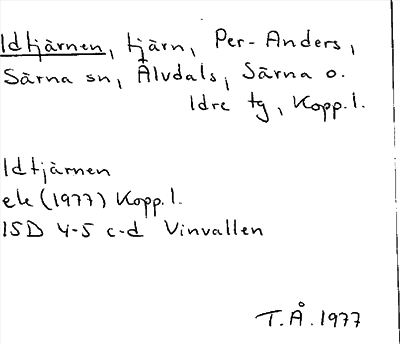 Idtjärnen, tjärn, Per-Anders,
Särna sn, Älvdals, Särna o.
Idre tg, Kopp.l.
Idtjärnen
ek (1977) Kopp.l.
15D 4-5 c-d Vinvallen
T.Å. 1977